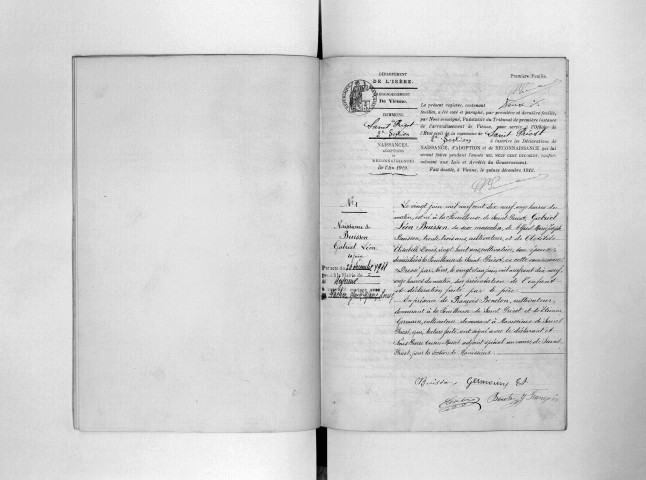 DÉPARTEMENT
DE L'ISÈRE.
ARRONDISSEMENT
De Vienne.
COMMUNE
Saint Priest
2e Section
NAISSANCES,
ADOPTIONS
RECONNAISSANCES
De l'An 1919.
Première Feuille.
Le présent registre, contenant
feuilles, a été coté et paraphé, par première et dernière feuille,
par Nous soussigné, Président du Tribunal de première instance
de l'arrondissement de Vienne, pour servir à l'Officier de
l'État civil de la commune de Saint Priest
2e Section à inscrire les Déclarations de
NAISSANCE, d'ADOPTION et de RECONNAISSANCE qui lui
seront faites pendant l'année MIL NEUF CENT DIX-NEUF, conformément
aux Lois et Arrêtés du Gouvernement.
Fait double, à Vienne, le quinze décembre 1918.
No 1
Naissance de
Buisson
Gabriel Léon
décembre 1941
Le vingt juin mil neuf cent dix neuf, onze heures du
matin, est né à la Fouillouse de Saint Priest, Gabriel
Léon Buisson du sexe masculin, de Joseph
Buisson, trente trois ans, cultivateur, et de Clotilde
vingt huit ans, cultivatrice, son épouse,
domiciliés à la Fouillouse de Saint Priest, en cette commune.
Dressé par Nous, le vingt un juin mil neuf cent dix neuf,
onze heures du matin, sur présentation de l'enfant
et déclaration faite par le père.
En présence de François cultivateur,
demeurant à la Fouillouse de Saint Priest et de Etienne
Germain, cultivateur demeurant à Manissieux de Saint
Priest, qui, lecture faite, ont signé avec le déclarant et
Nous Pierre adjoint spécial au maire de Saint
Priest, pour la section de Manissieux.
Buisson Germain Et
François